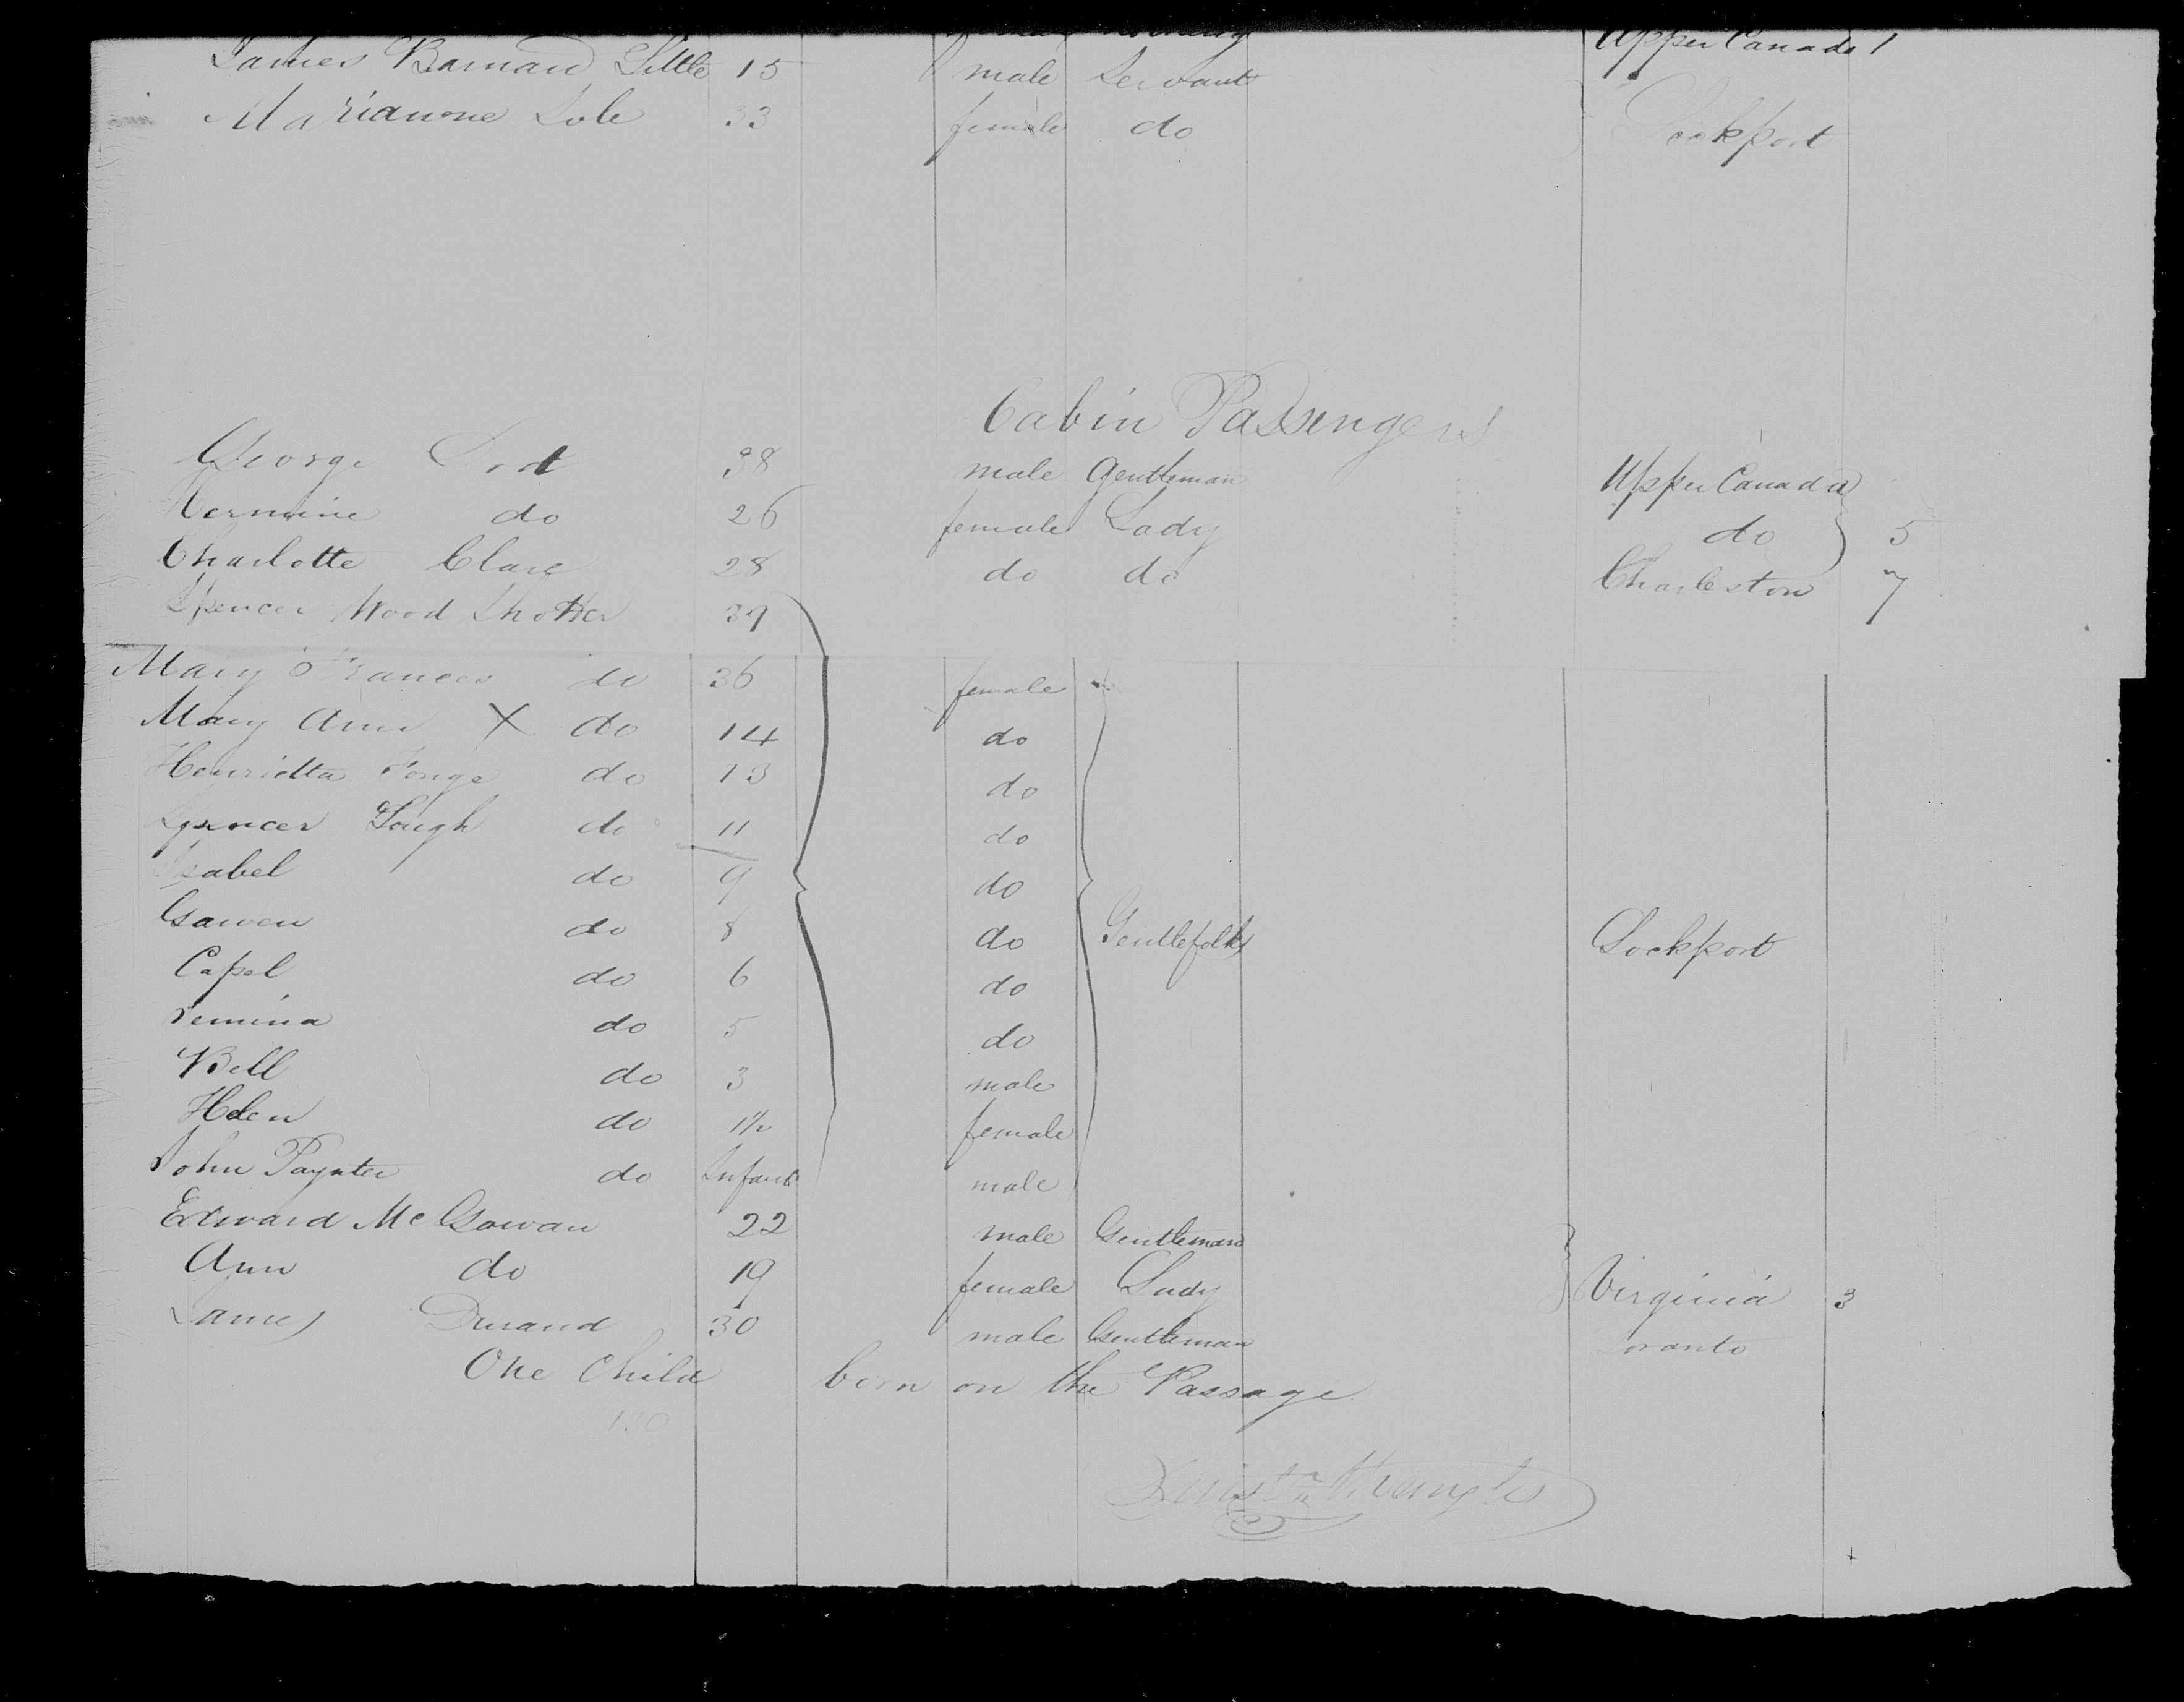 Upper Canada 1
James Barnard Little 15 male Servant
Marianne Sole 33 female do Lockport
Cabin Passengers
George 38 male Gentleman Upper Canada
Hermine do 26 female Lady do 5
Charlotte Clare 28 do do Charleston 7
Spencer Wood Shotter 39
Mary Frances do 36 female
Mary Ann X do 14 do
Henrietta Fonge do 13 do
Spencer Gough do 11 do
Isabel do 9 do
Gawen do 8 do Gentlefolks Lockport
Capel do 6 do
Jemina do 5 do
Bell do 3 male
Helen do 1½ female
John Paynter do Infant male
Edward McGowan 22 male Gentleman
Ann do 19 female Lady Virginia 3
James Durand 30 male Gentleman Toranto
One Child born on the Passage
130